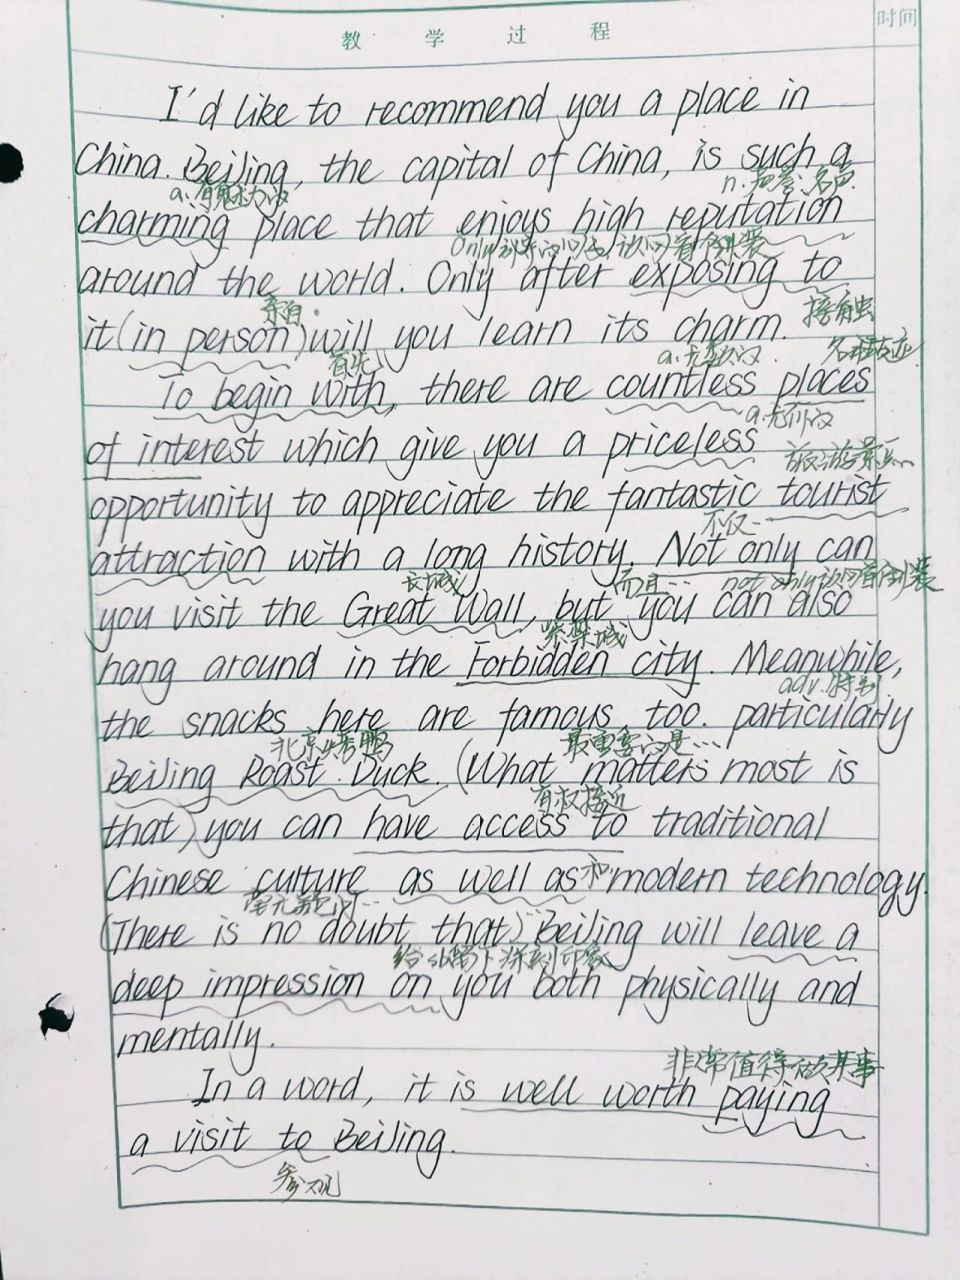 教 学 过 程 时间
I'd like to recommend you a place in
China. Beijing, the capital of China, is such a
a.有魅力的 n.声誉;名声
charming place that enjoys high reputation
only 放句首倒装
around the world. Only after exposing to
亲自. 接触
it (in person) will you learn its charm.
首先 a.无数的. 名胜古迹
To begin with, there are countless places
a.无价的
of interest which give you a priceless
旅游景点
opportunity to appreciate the fantastic tourist
不仅...
attraction with a long history. Not only can
长城 而且... not only 放句首倒装
you visit the Great Wall, but you can also
紫禁城
hang around in the Forbidden city. Meanwhile,
adv.特别
the snacks here are famous, too. particularly
北京烤鸭 最重要的是...
Beijing Roast Duck. (What matters most is
有权接近
that) you can have access to traditional
Chinese culture as well as 和 modern technology.
毫无疑问...
(There is no doubt that) Beijing will leave a
给sb留下深刻印象
deep impression on you both physically and
mentally.
非常值得做某事
In a word, it is well worth paying
a visit to Beijing.
参观